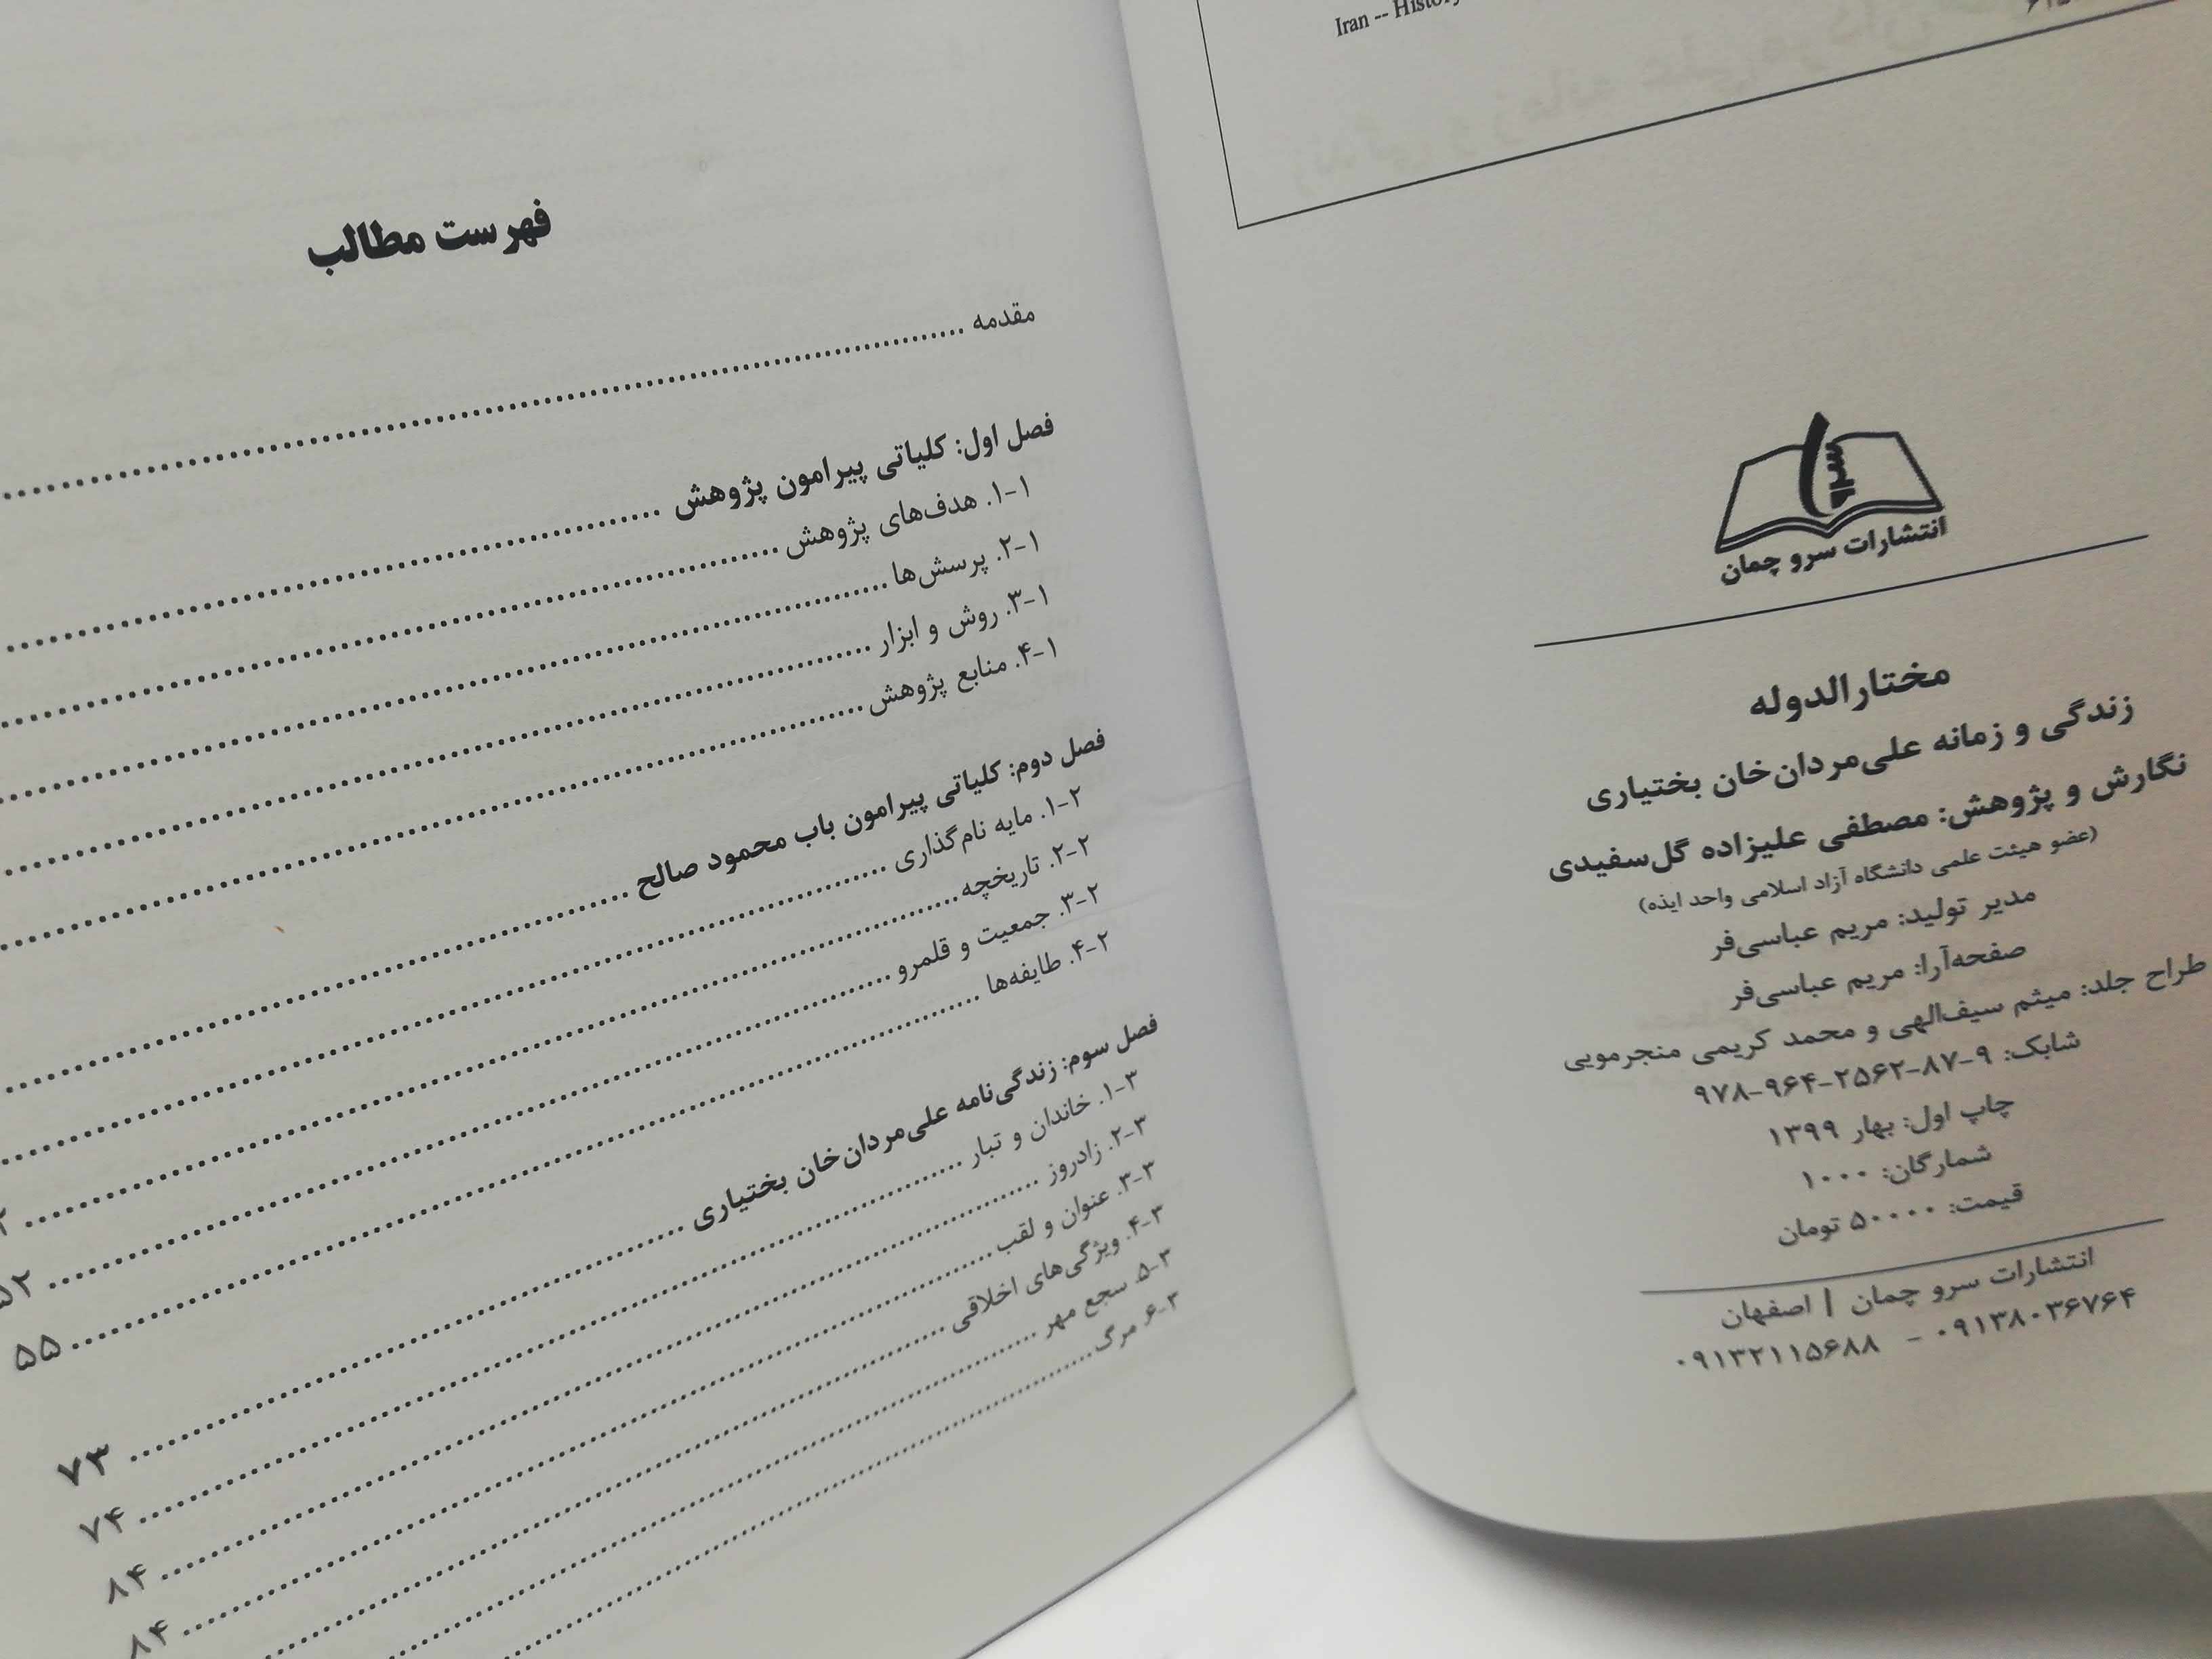 Iran -- History
سرو
انتشارات سرو چمان
مختارالدوله
زندگی و زمانه علی‌مردان‌خان بختیاری
نگارش و پژوهش: مصطفی علیزاده گل‌سفیدی
(عضو هیئت علمی دانشگاه آزاد اسلامی واحد ایذه)
مدیر تولید: مریم عباسی‌فر
صفحه‌آرا: مریم عباسی‌فر
طراح جلد: میثم سیف‌الهی و محمد کریمی منجرمویی
شابک: ۹-۸۷-۲۵۶۲-۹۶۴-۹۷۸
چاپ اول: بهار ۱۳۹۹
شمارگان: ۱۰۰۰
قیمت: ۵۰۰۰۰ تومان
انتشارات سرو چمان | اصفهان
۰۹۱۳۸۰۳۶۷۶۴ - ۰۹۱۳۲۱۱۵۶۸۸
فهرست مطالب
مقدمه
فصل اول: کلیاتی پیرامون پژوهش
۱-۱. هدف‌های پژوهش
۱-۲. پرسش‌ها
۱-۳. روش و ابزار
۱-۴. منابع پژوهش
فصل دوم: کلیاتی پیرامون باب محمود صالح
۲-۱. مایه نام‌گذاری
۲-۲. تاریخچه
۲-۳. جمعیت و قلمرو ۵۲
۲-۴. طایفه‌ها ۵۵
فصل سوم: زندگی‌نامه علی‌مردان‌خان بختیاری ۷۳
۳-۱. خاندان و تبار ۷۴
۳-۲. زادروز ۸۴
۳-۳. عنوان و لقب ۸۴
۳-۴. ویژگی‌های اخلاقی
۳-۵. سجع مهر
۳-۶. مرگ